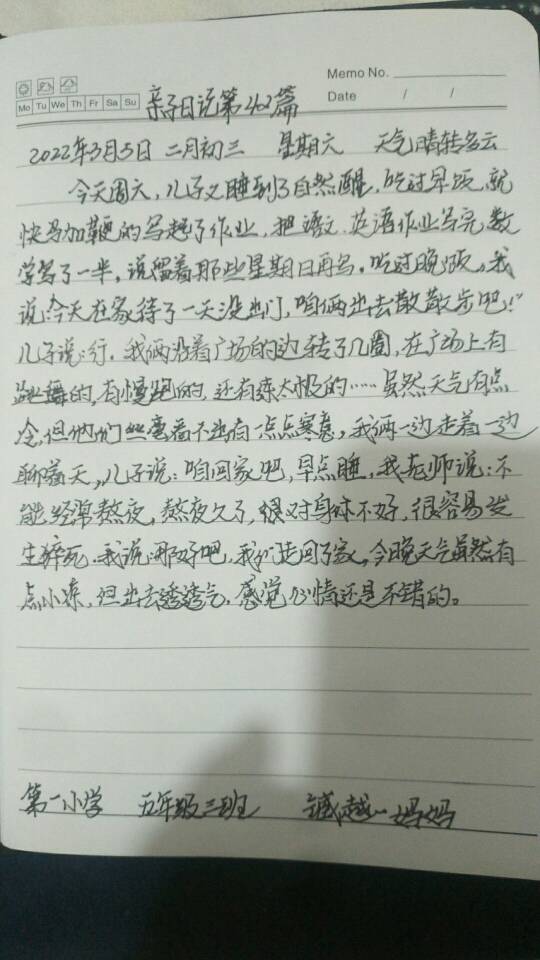 Memo No.
Mo Tu We Th Fr Sa Su
Date / /
亲子日记第402篇
2022年3月5日 二月初三 星期六 天气晴转多云
今天周六,儿子又睡到了自然醒,吃过早饭,就
快马加鞭的写起了作业,把语文、英语作业写完,数
学写了一半,说留着那些星期日再写。吃过晚饭,我
说:“今天在家待了一天没出门,咱俩出去散散步吧!”
儿子说:行。我俩沿着广场的边转了几圈,在广场上有
跳舞的,有慢跑的,还有练太极的……虽然天气有点
冷,但他们丝毫看不出有一点点寒意,我俩一边走着一边
聊着天,儿子说:咱回家吧,早点睡,我老师说:不
能经常熬夜,熬夜久了,很对身体不好,很容易发
生猝死。我说:那好吧,我们走回了家。今晚天气虽然有
点小凉,但出去透透气,感觉心情还是不错的。
第一小学 五年级三班 越 妈妈